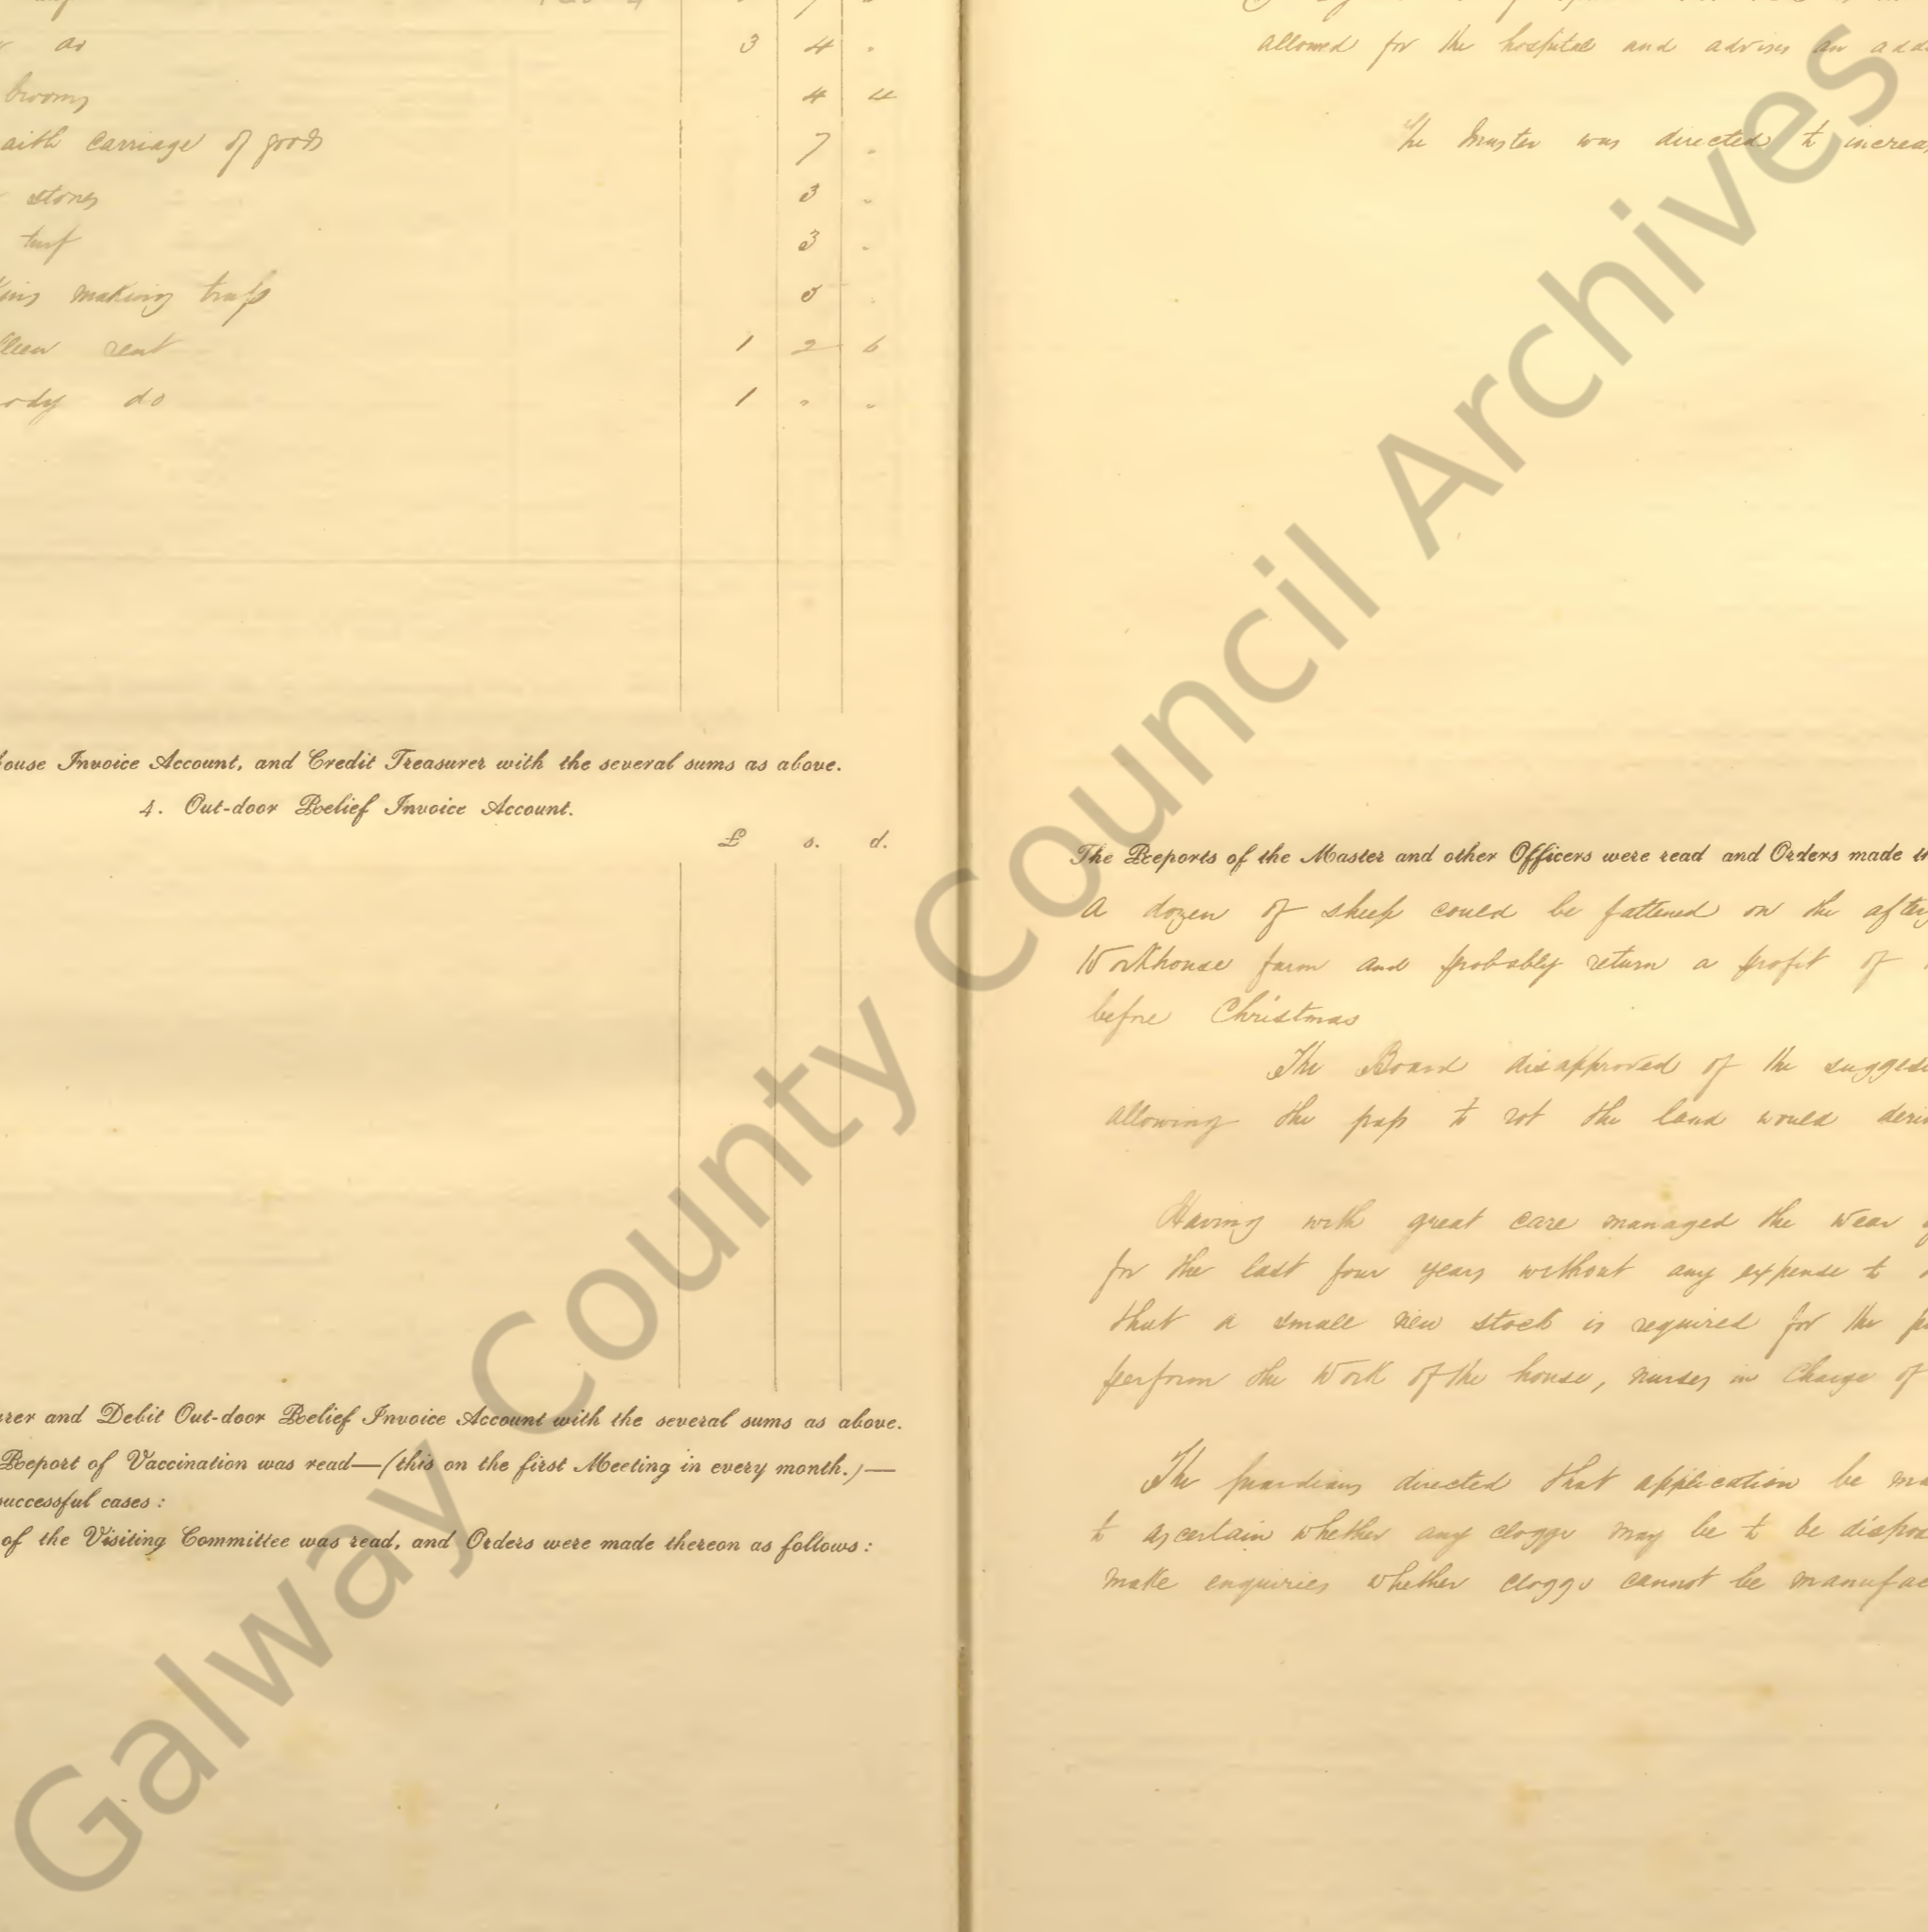 do 3 4 "
brooms 4 4
carriage of goods 7 "
stones 3 "
turf 3 "
making traps
rent 1 2 6
ody do 1 " "
ouse Invoice Account, and Credit Treasurer with the several sums as above.
4. Out-door Relief Invoice Account.
£ s. d.
rer and Debit Out-door Relief Invoice Account with the several sums as above.
Report of Vaccination was read—(this on the first Meeting in every month.)—
successful cases :
of the Visiting Committee was read, and Orders were made thereon as follows :
allowed for the hospital and advises an add
The Master was directed to increas
The Reports of the Master and other Officers were read and Orders made th
A dozen of sheep could be fattened on the after
Workhouse farm and probably return a profit of
before Christmas
The Board disapproved of the sugges
allowing the to rot the land would deri
Having with great care managed the wear
for the last four years without any expense to
that a small new stock is required for the
perform the work of the house, nurses in charge of
The Guardians directed that application be ma
to ascertain whether any cloggs may be to be dispos
make enquiries whether cloggs cannot be manufac
Galway County Council Archives